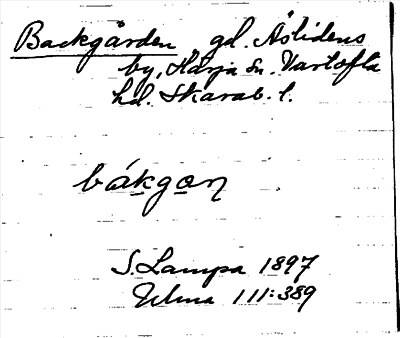 Backgården gd. Åslidens
by, Härja sn. Vartofta
hd. Skarab. l.
bákgoɳ
S. Lampa 1897
Ulma 111:389